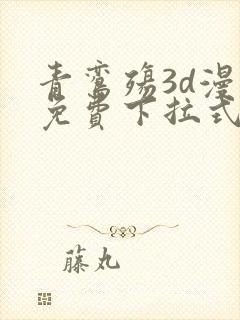 青鸾殇3d漫
免費下拉式
藤丸